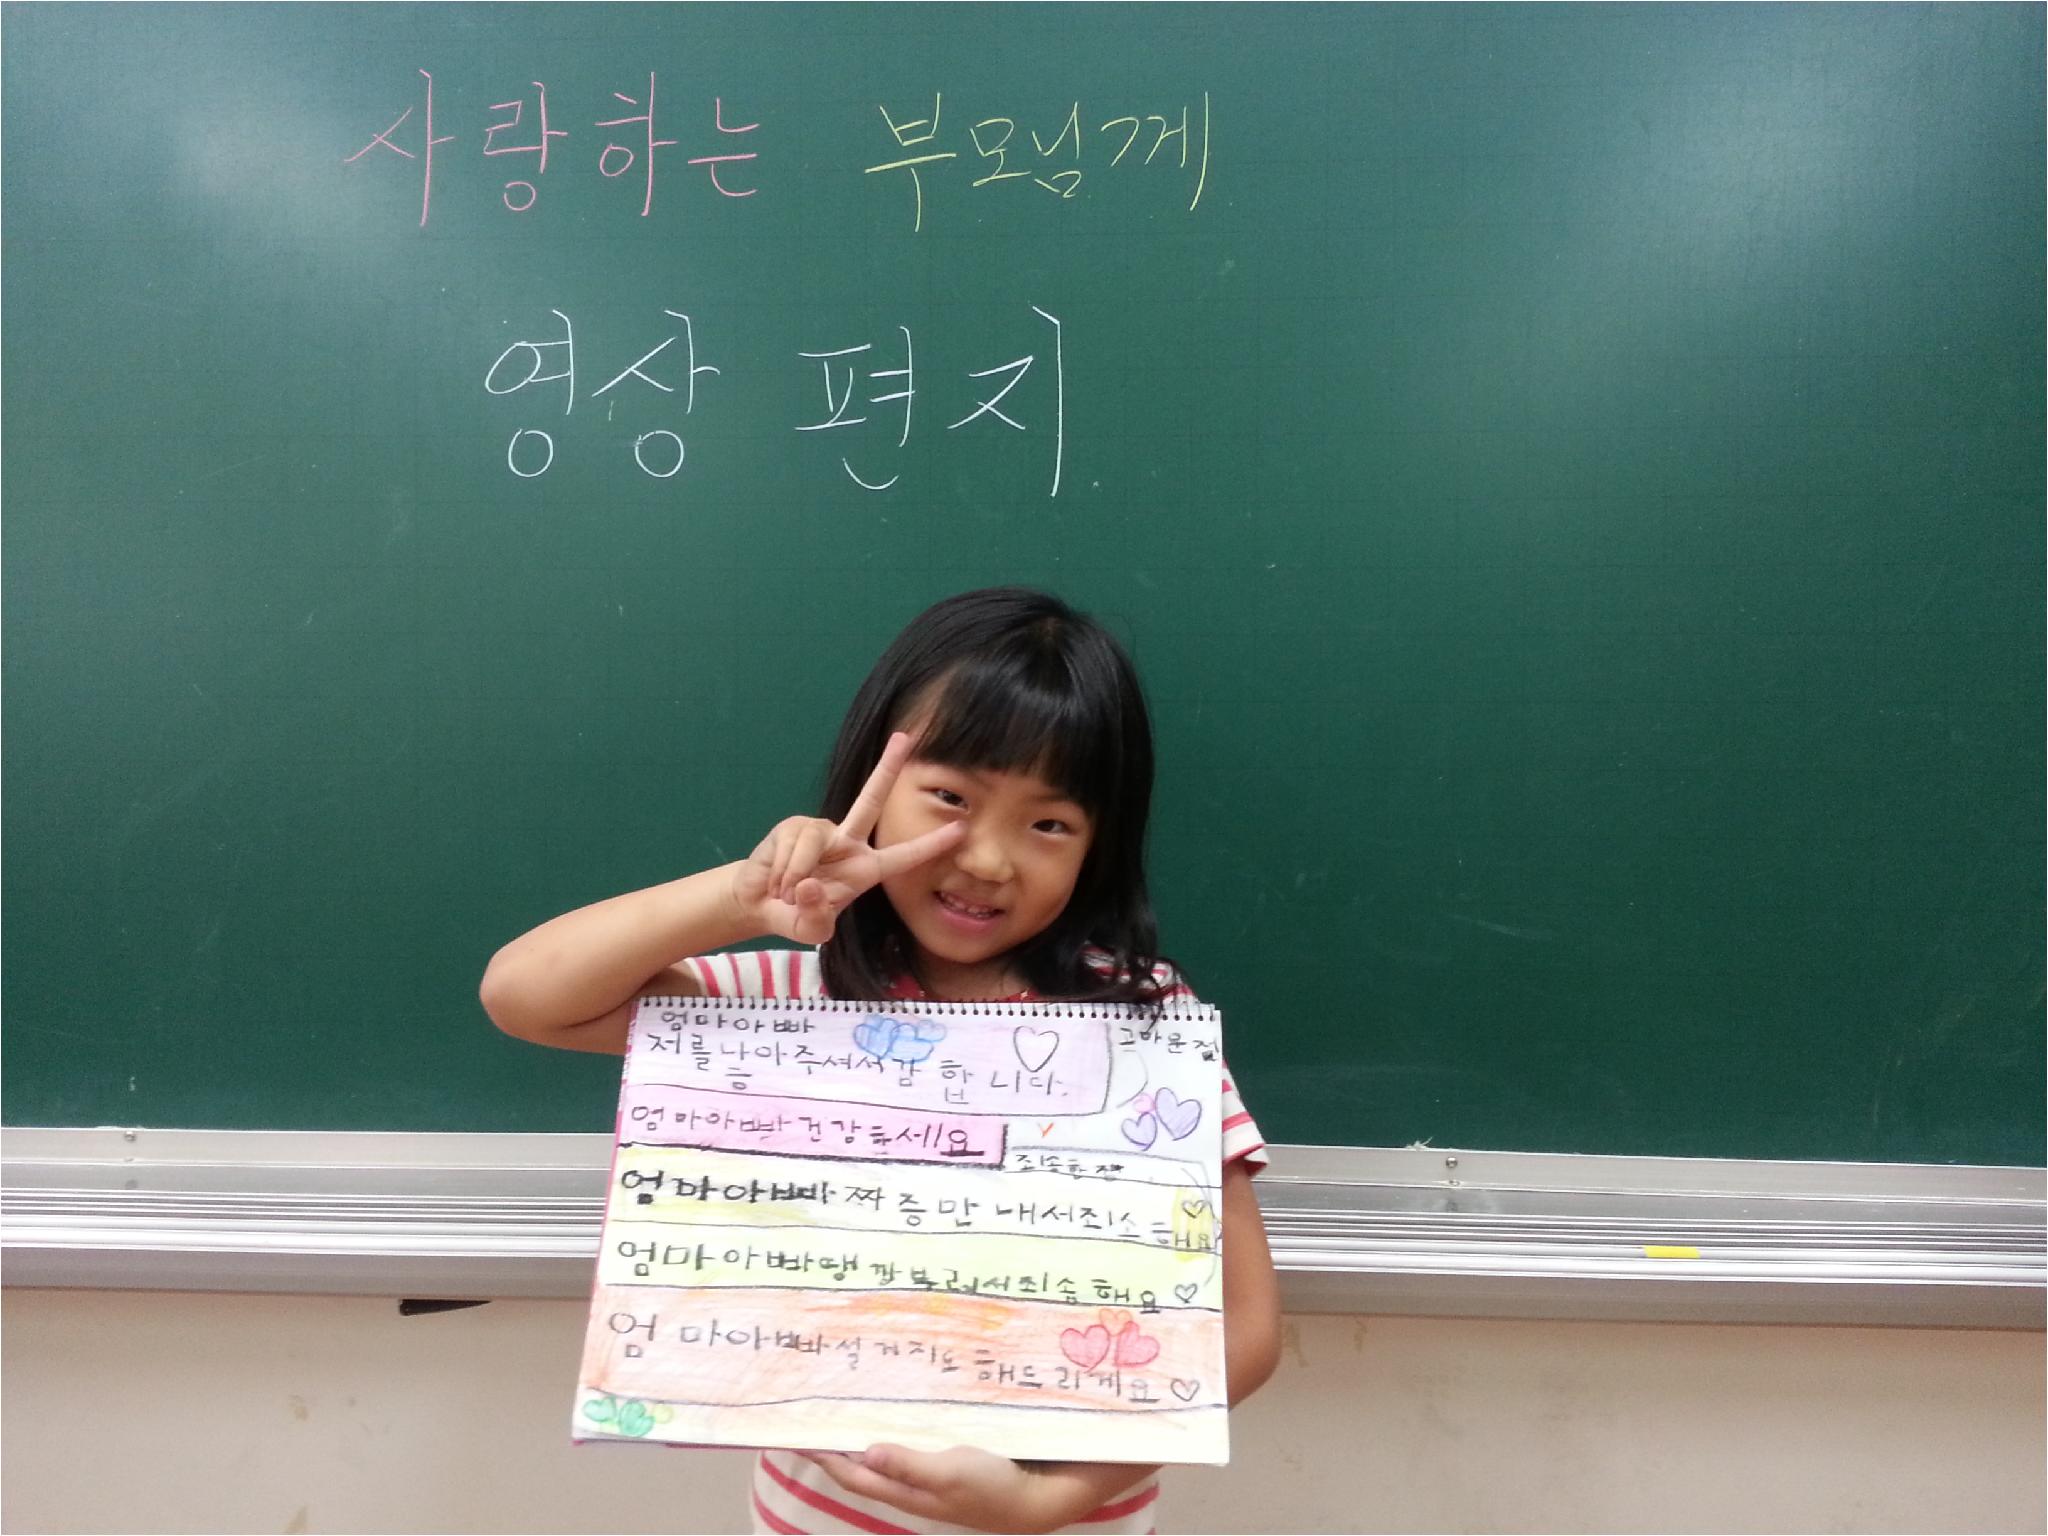 사랑하는 부모님께
영상 편지
엄마아빠
저를 나아주셔서감 합니다.
고마운점
엄마아빠건강하세요
죄송한점
엄마아빠짜증만 내서죄소해요
엄마아빠땡깡부려서죄송해요
엄마아빠설거지도해드리게요